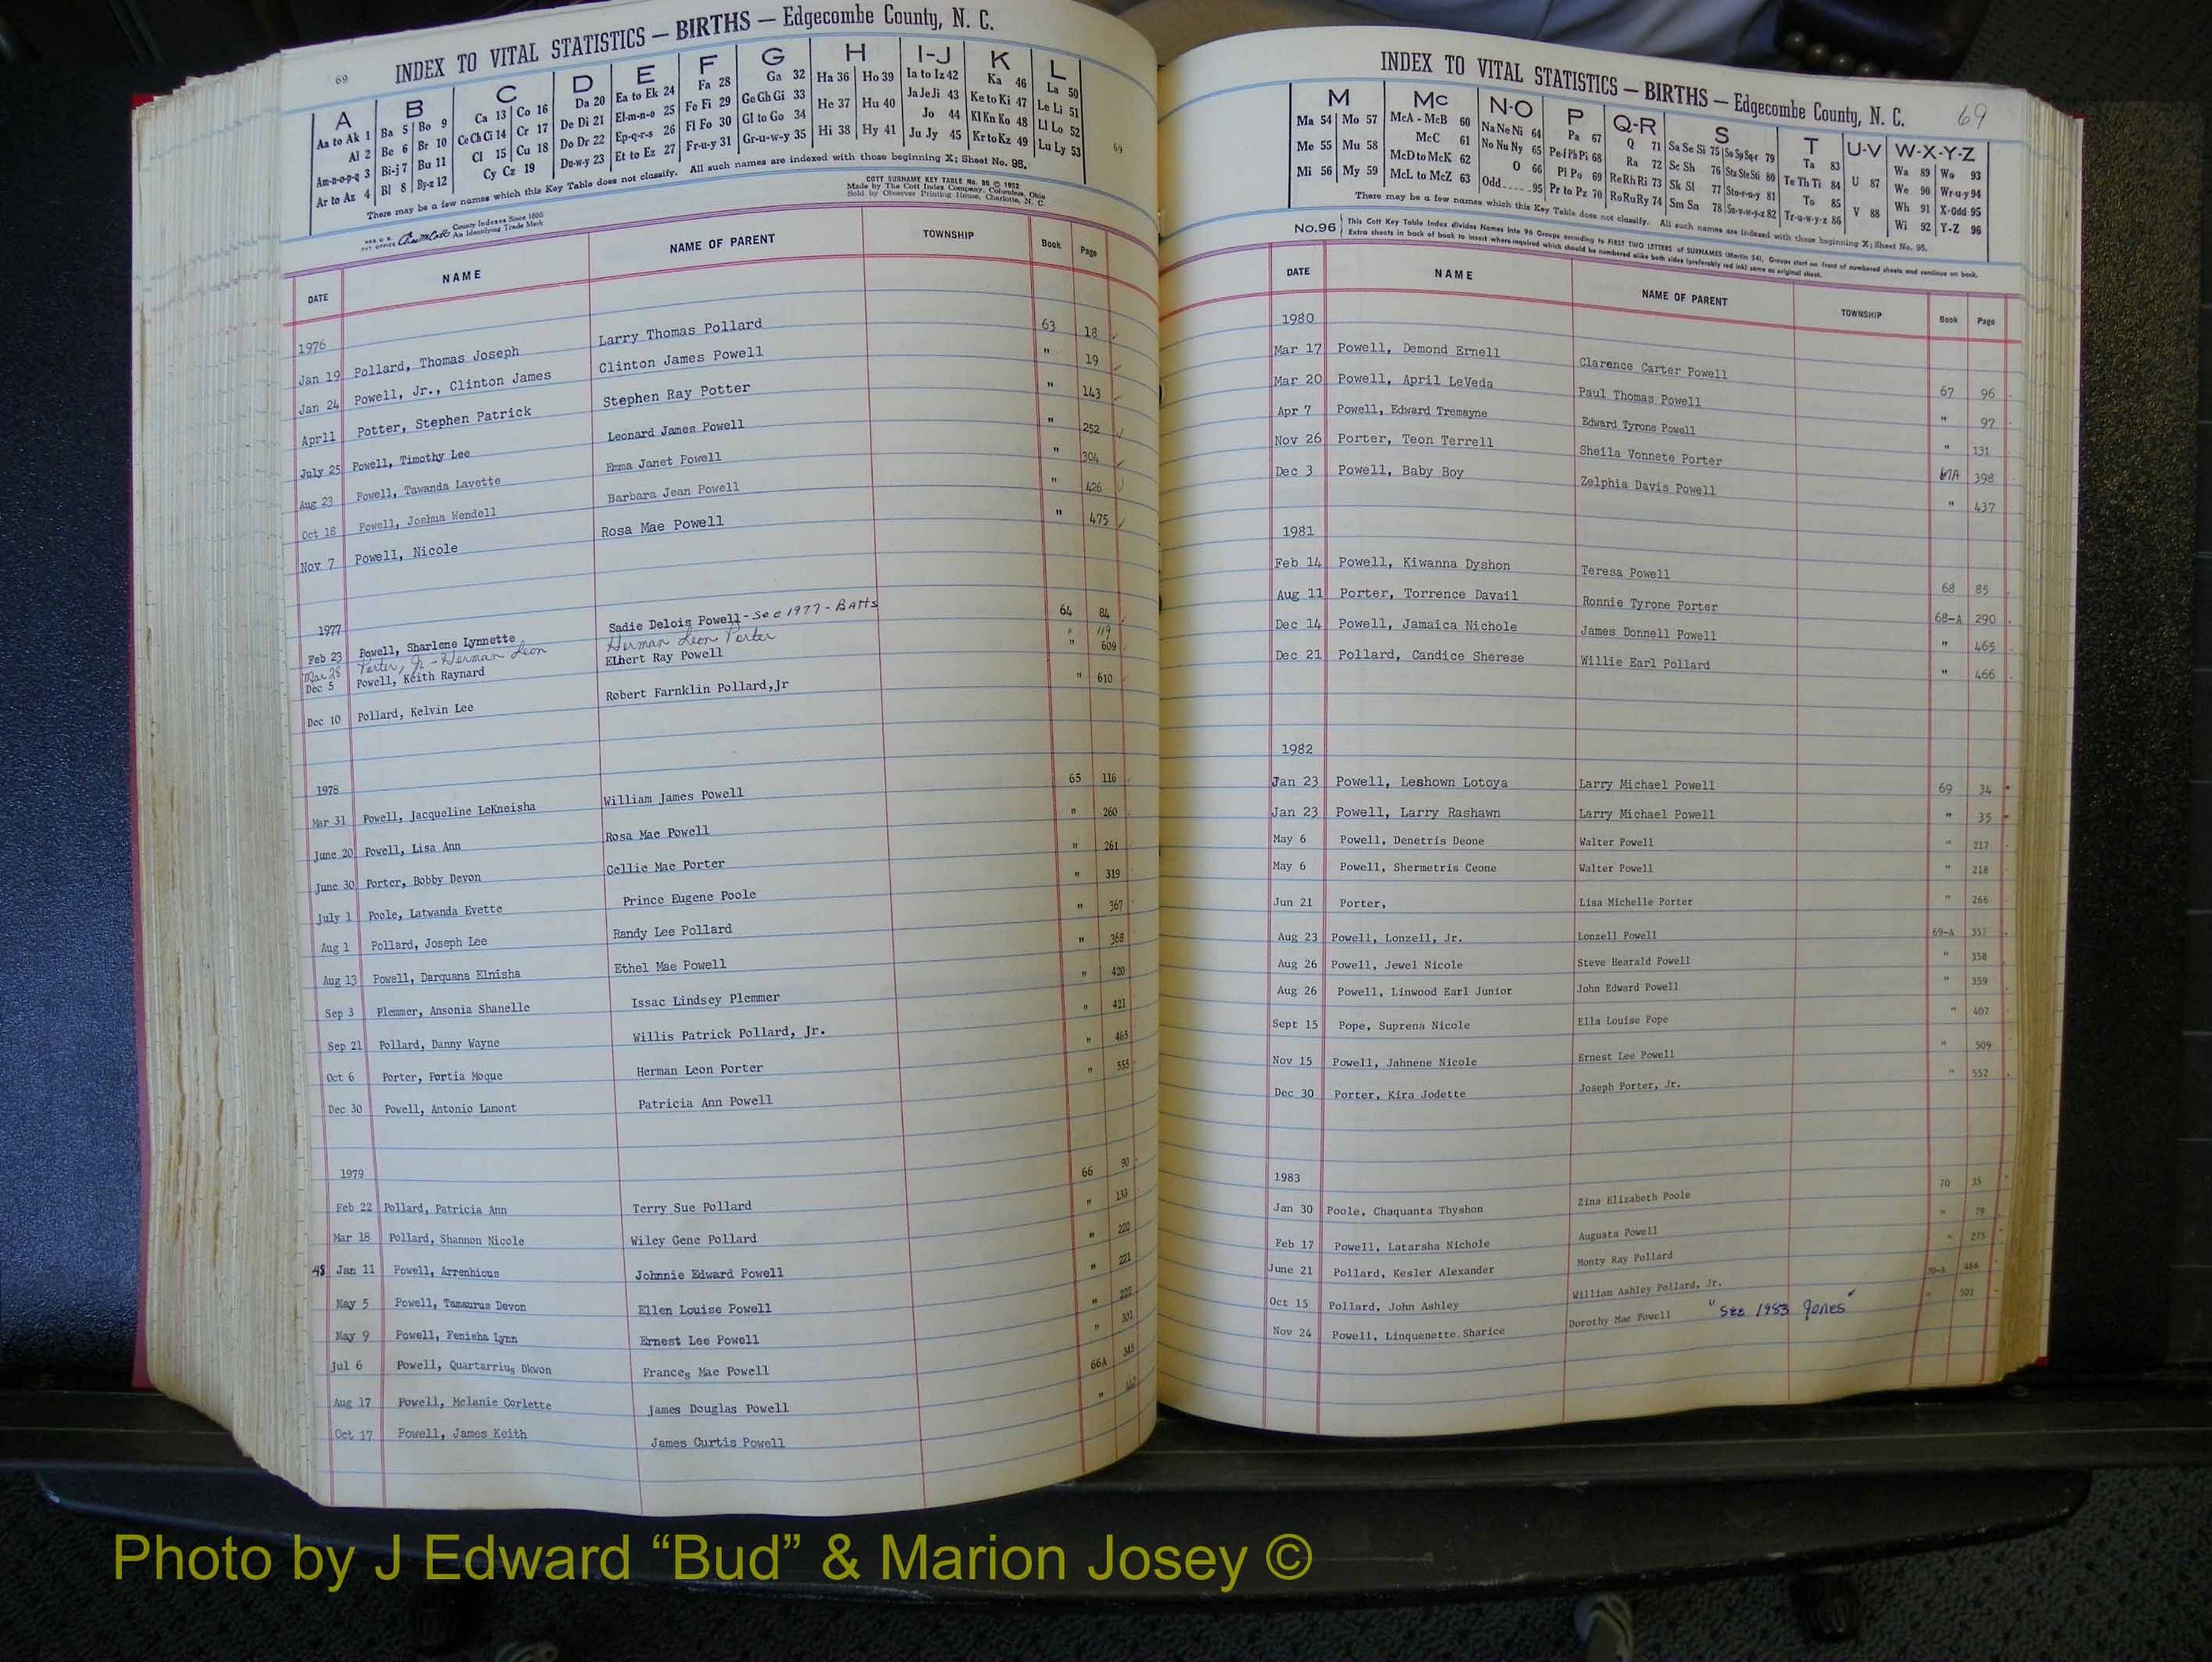 69
INDEX TO VITAL STATISTICS — BIRTHS — Edgecombe County, N. C.
A B C D E F G H I-J K L
Aa to Ak 1 Ba 5 Bo 9 Ca 13 Co 16 Da 20 Ea to Ek 24 Fa 28 Ga 32 Ha 36 Ho 39 Ia to Iz 42 Ka 46 La 50
Al 2 Be 6 Br 10 Ce Ch Ci 14 Cr 17 De Di 21 El-m-n-o 25 Fe Fi 29 Ge Gh Gi 33 He 37 Hu 40 Ja Je Ji 43 Ke to Ki 47 Le Li 51
Am-n-o-p-q 3 Bi-j 7 Bu 11 Cl 15 Cu 18 Do Dr 22 Ep-q-r-s 26 Fl Fo 30 Gl to Go 34 Hi 38 Hy 41 Jo 44 Kl Kn Ko 48 Ll Lo 52
Ar to Az 4 Bl 8 By-z 12 Cy Cz 19 Du-w-y 23 Et to Ez 27 Fr-u-y 31 Gr-u-w-y 35 Ju Jy 45 Kr to Kz 49 Lu Ly 53
69
There may be a few names which this Key Table does not classify. All such names are indexed with those beginning X; Sheet No. 95.
County Indexes Since 1888
An Identifying Trade Mark
COTT SURNAME KEY TABLE No. 96 © 1952
Made by The Cott Index Company, Columbus, Ohio
Sold by Observer Printing House, Charlotte, N. C.
DATE NAME NAME OF PARENT TOWNSHIP Book Page
1976
Jan 19 Pollard, Thomas Joseph Larry Thomas Pollard 63 18
Jan 24 Powell, Jr., Clinton James Clinton James Powell " 19
Apr11 Potter, Stephen Patrick Stephen Ray Potter " 143
July 25 Powell, Timothy Lee Leonard James Powell " 252
Aug 23 Powell, Tawanda Lavette Emma Janet Powell " 304
Oct 18 Powell, Joshua Wendell Barbara Jean Powell " 426
Nov 7 Powell, Nicole Rosa Mae Powell " 475
1977
Feb 23 Powell, Sharlene Lynnette Sadie Delois Powell - See 1977 - BAtts 64 84
Mar 28 Porter, Jr - Herman Leon Herman Leon Porter " 119
Dec 5 Powell, Keith Raynard Elbert Ray Powell " 609
Dec 10 Pollard, Kelvin Lee Robert Farnklin Pollard,Jr " 610
1978
Mar 31 Powell, Jacqueline LeKneisha William James Powell 65 116
June 20 Powell, Lisa Ann Rosa Mae Powell " 260
June 30 Porter, Bobby Devon Cellie Mae Porter " 261
July 1 Poole, Latwanda Evette Prince Eugene Poole " 319
Aug 1 Pollard, Joseph Lee Randy Lee Pollard " 367
Aug 13 Powell, Darquana Elnisha Ethel Mae Powell " 368
Sep 3 Plemmer, Ansonia Shanelle Issac Lindsey Plemmer " 420
Sep 21 Pollard, Danny Wayne Willis Patrick Pollard, Jr. " 421
Oct 6 Porter, Portia Moque Herman Leon Porter " 465
Dec 30 Powell, Antonio Lamont Patricia Ann Powell " 555
1979
Feb 22 Pollard, Patricia Ann Terry Sue Pollard 66 90
Mar 18 Pollard, Shannon Nicole Wiley Gene Pollard " 133
Jan 11 Powell, Arrenhious Johnnie Edward Powell " 220
May 5 Powell, Tamaurus Devon Ellen Louise Powell " 221
May 9 Powell, Fenisha Lynn Ernest Lee Powell " 222
Jul 6 Powell, Quartarrius Dkwon Frances Mae Powell " 302
Aug 17 Powell, Melanie Corlette James Douglas Powell 66A 345
Oct 17 Powell, James Keith James Curtis Powell "
INDEX TO VITAL STATISTICS — BIRTHS — Edgecombe County, N. C.
69
M Mc N-O P Q-R S T U-V W-X-Y-Z
Ma 54 Mo 57 McA - McB 60 Na Ne Ni 64 Pa 67 Q 71 Sa Se Si 75 So Sp Sq-r 79 Ta 83 U 87 Wa 89 Wo 93
Me 55 Mu 58 McC 61 No Nu Ny 65 Pe-f Ph Pi 68 Ra 72 Sc Sh 76 Sta Ste Sti 80 Te Th Ti 84 V 88 We 90 Wr-u-y 94
Mi 56 My 59 McD to McK 62 O 66 Pl Po 69 Re Rh Ri 73 Sk Sl 77 Sto-r-u-y 81 To 85 Wh 91 X-Odd 95
McL to McZ 63 Odd 95 Pr to Pz 70 Ro Ru Ry 74 Sm Sn 78 Su-v-w-y-z 82 Tr-u-w-y-z 86 Wi 92 Y-Z 96
There may be a few names which this Key Table does not classify. All such names are indexed with those beginning X; Sheet No. 95.
No.96 This Cott Key Table Index divides Names into 96 Groups according to FIRST TWO LETTERS of SURNAMES (Martin 54). Groups start on front of numbered sheets and continue on back.
Extra sheets in back of book to insert where required which should be numbered alike both sides (preferably red ink) same as original sheet.
DATE NAME NAME OF PARENT TOWNSHIP Book Page
1980
Mar 17 Powell, Demond Ernell Clarence Carter Powell 67 96
Mar 20 Powell, April LeVeda Paul Thomas Powell " 97
Apr 7 Powell, Edward Tremayne Edward Tyrone Powell " 131
Nov 26 Porter, Teon Terrell Sheila Vonnete Porter 67A 398
Dec 3 Powell, Baby Boy Zelphia Davis Powell " 437
1981
Feb 14 Powell, Kiwanna Dyshon Teresa Powell 68 85
Aug 11 Porter, Torrence Davail Ronnie Tyrone Porter 68-A 290
Dec 14 Powell, Jamaica Nichole James Donnell Powell " 465
Dec 21 Pollard, Candice Sherese Willie Earl Pollard " 466
1982
Jan 23 Powell, Leshown Lotoya Larry Michael Powell 69 34
Jan 23 Powell, Larry Rashawn Larry Michael Powell " 35
May 6 Powell, Denetris Deone Walter Powell " 217
May 6 Powell, Shermetris Ceone Walter Powell " 218
Jun 21 Porter, Lisa Michelle Porter " 266
Aug 23 Powell, Lonzell, Jr. Lonzell Powell 69-A 357
Aug 26 Powell, Jewel Nicole Steve Hearald Powell " 358
Aug 26 Powell, Linwood Earl Junior John Edward Powell " 359
Sept 15 Pope, Suprena Nicole Ella Louise Pope " 407
Nov 15 Powell, Jahnene Nicole Ernest Lee Powell " 509
Dec 30 Porter, Kira Jodette Joseph Porter, Jr. " 552
1983
Jan 30 Poole, Chaquanta Thyshon Zina Elizabeth Poole 70 35
Feb 17 Powell, Latarsha Nichole Augusta Powell " 79
June 21 Pollard, Kesler Alexander Monty Ray Pollard " 275
Oct 15 Pollard, John Ashley William Ashley Pollard, Jr. 70-A 466
Nov 24 Powell, Linquenette Sharice Dorothy Mae Powell "See 1983 Jones" " 501
Photo by J Edward “Bud” & Marion Josey ©